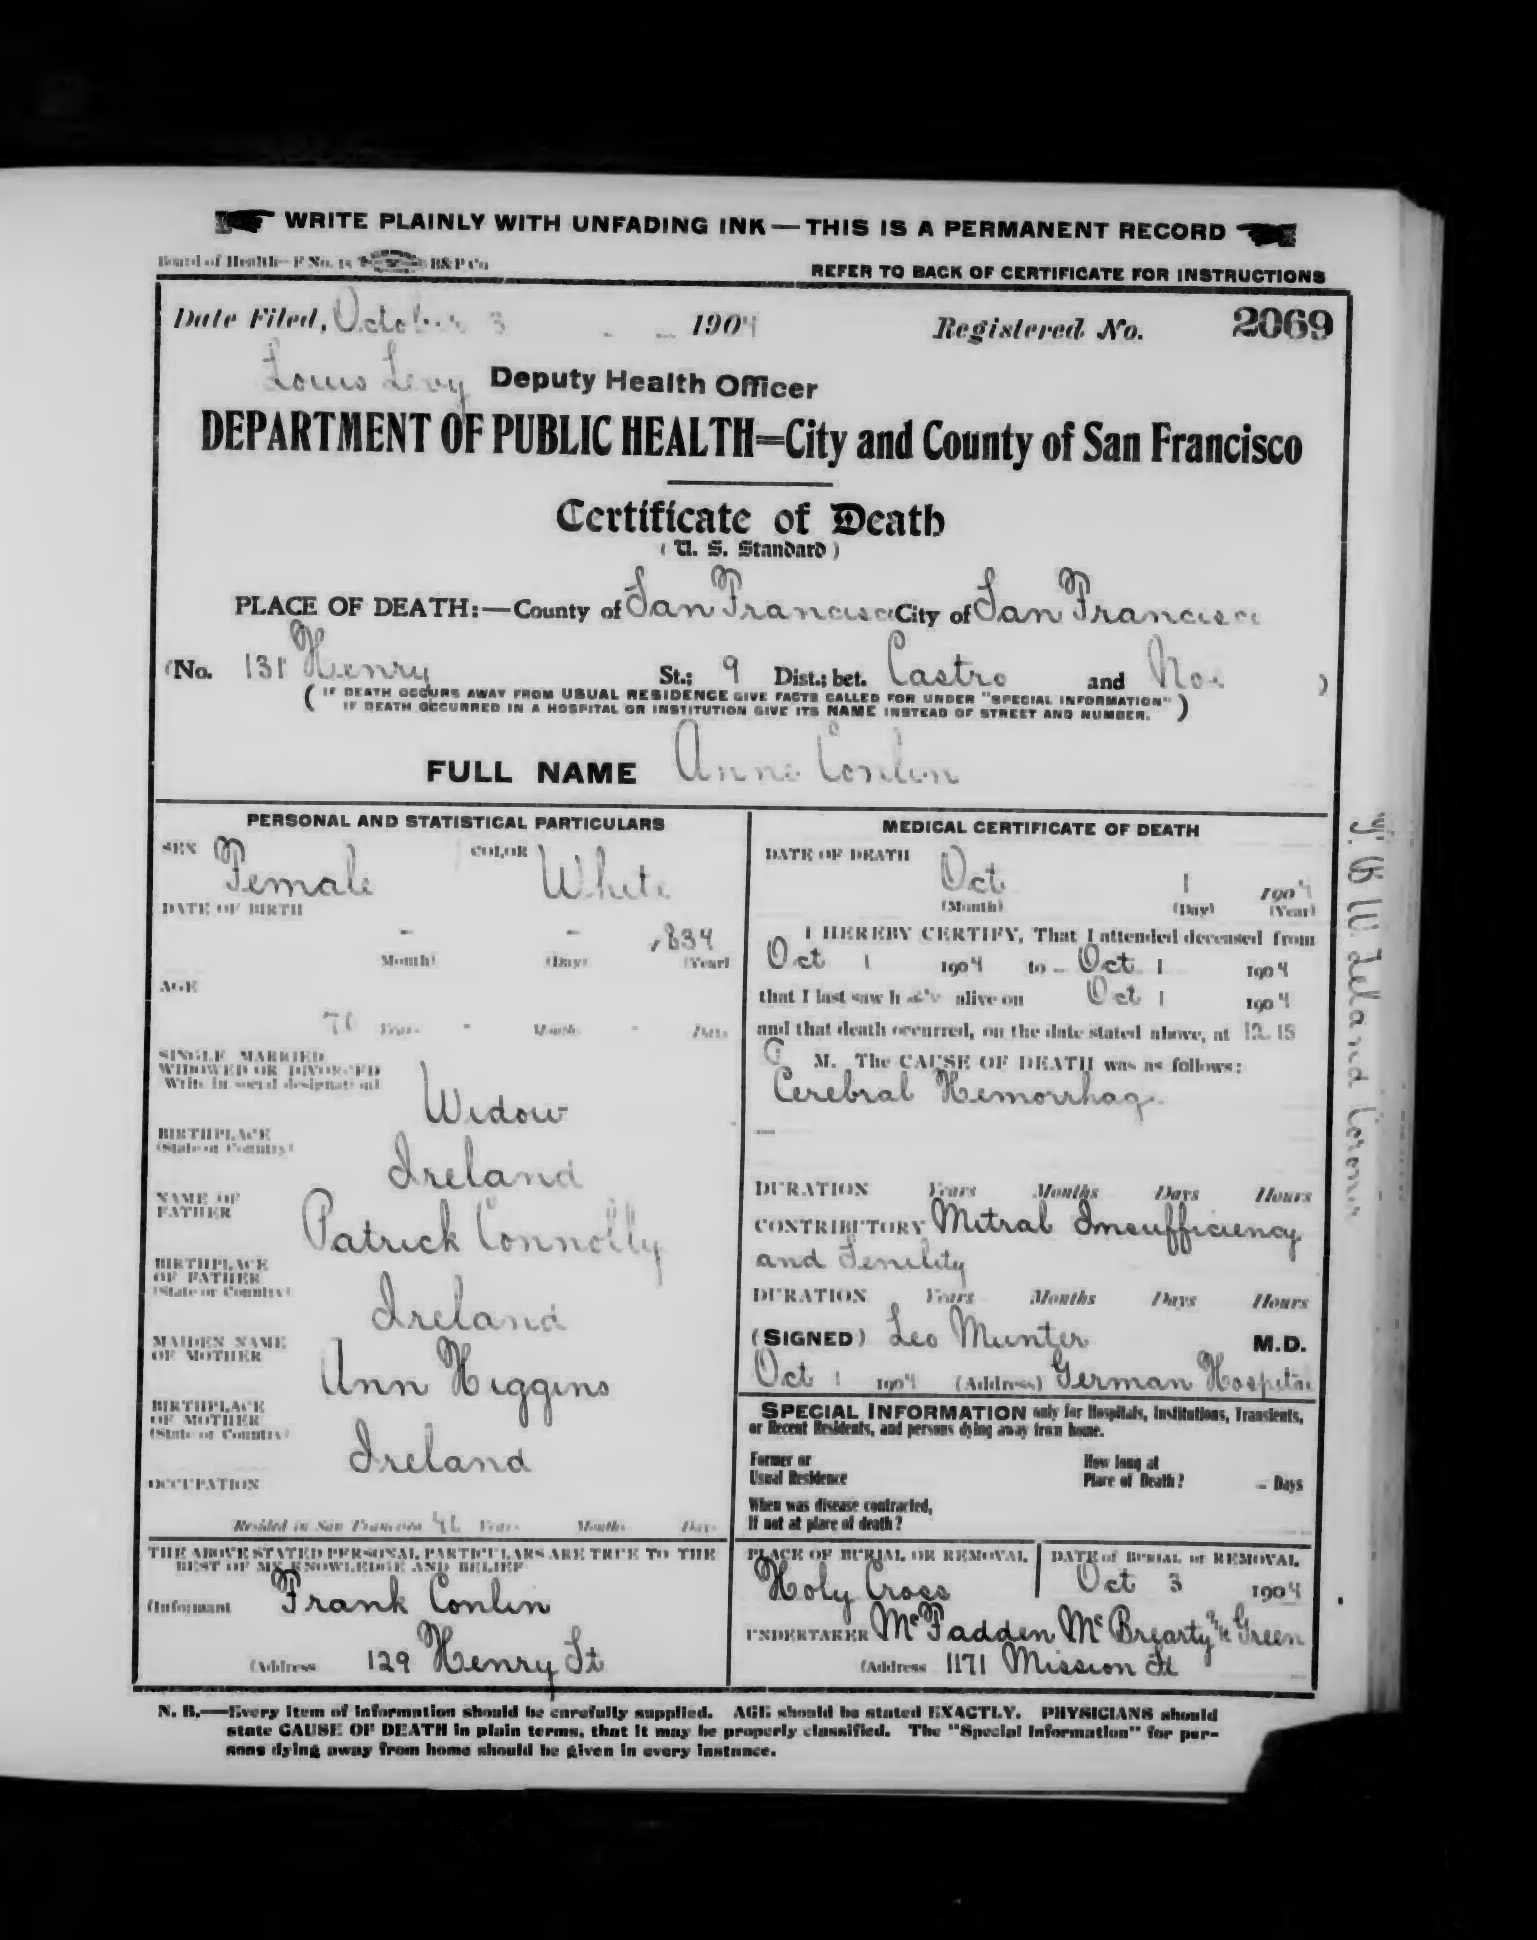 WRITE PLAINLY WITH UNFADING INK — THIS IS A PERMANENT RECORD
Board of Health—F No. 15 B&P Co
REFER TO BACK OF CERTIFICATE FOR INSTRUCTIONS
Date Filed, October 3 1904 Registered No. 2069
Louis Levy Deputy Health Officer
DEPARTMENT OF PUBLIC HEALTH=City and County of San Francisco
Certificate of Death
(U. S. Standard)
PLACE OF DEATH:—County of San Francisco City of San Francisco
(No. 131 Henry St.; 9 Dist.; bet. Castro and Noe )
( IF DEATH OCCURS AWAY FROM USUAL RESIDENCE GIVE FACTS CALLED FOR UNDER "SPECIAL INFORMATION"
IF DEATH OCCURRED IN A HOSPITAL OR INSTITUTION GIVE ITS NAME INSTEAD OF STREET AND NUMBER. )
FULL NAME Anne Conlin
PERSONAL AND STATISTICAL PARTICULARS
SEX Female COLOR White
DATE OF BIRTH
- - 1834
(Month) (Day) (Year)
AGE
70 Years - Months - Days
SINGLE MARRIED
WIDOWED OR DIVORCED
Write in social designation)
Widow
BIRTHPLACE
(State or Country)
Ireland
NAME OF
FATHER
Patrick Connolly
BIRTHPLACE
OF FATHER
(State or Country)
Ireland
MAIDEN NAME
OF MOTHER
Ann Higgins
BIRTHPLACE
OF MOTHER
(State or Country)
Ireland
OCCUPATION
Resided in San Francisco Years Months Days
THE ABOVE STATED PERSONAL PARTICULARS ARE TRUE TO THE
BEST OF MY KNOWLEDGE AND BELIEF
(Informant Frank Conlin
(Address 129 Henry St
MEDICAL CERTIFICATE OF DEATH
DATE OF DEATH
Oct 1 1904
(Month) (Day) (Year)
I HEREBY CERTIFY, That I attended deceased from
Oct 1 1904 to Oct 1 1904
that I last saw h alive on Oct 1 1904
and that death occurred, on the date stated above, at 12.15
M. The CAUSE OF DEATH was as follows:
Cerebral Hemorrhage
DURATION Years Months Days Hours
CONTRIBUTORY Mitral Insufficiency
and Senility
DURATION Years Months Days Hours
(SIGNED) Leo Munter M.D.
Oct 1 1904 (Address) German Hospital
SPECIAL INFORMATION only for Hospitals, Institutions, Transients,
or Recent Residents, and persons dying away from home.
Former or
Usual Residence
How long at
Place of Death? Days
When was disease contracted,
If not at place of death?
PLACE OF BURIAL OR REMOVAL
Holy Cross
DATE of BURIAL or REMOVAL
Oct 3 1904
UNDERTAKER McFadden McBrearty & Green
(Address 1171 Mission St
N. B.—Every item of information should be carefully supplied. AGE should be stated EXACTLY. PHYSICIANS should
state CAUSE OF DEATH in plain terms, that it may be properly classified. The "Special Information" for per-
sons dying away from home should be given in every instance.
T. B W Leland Coroner